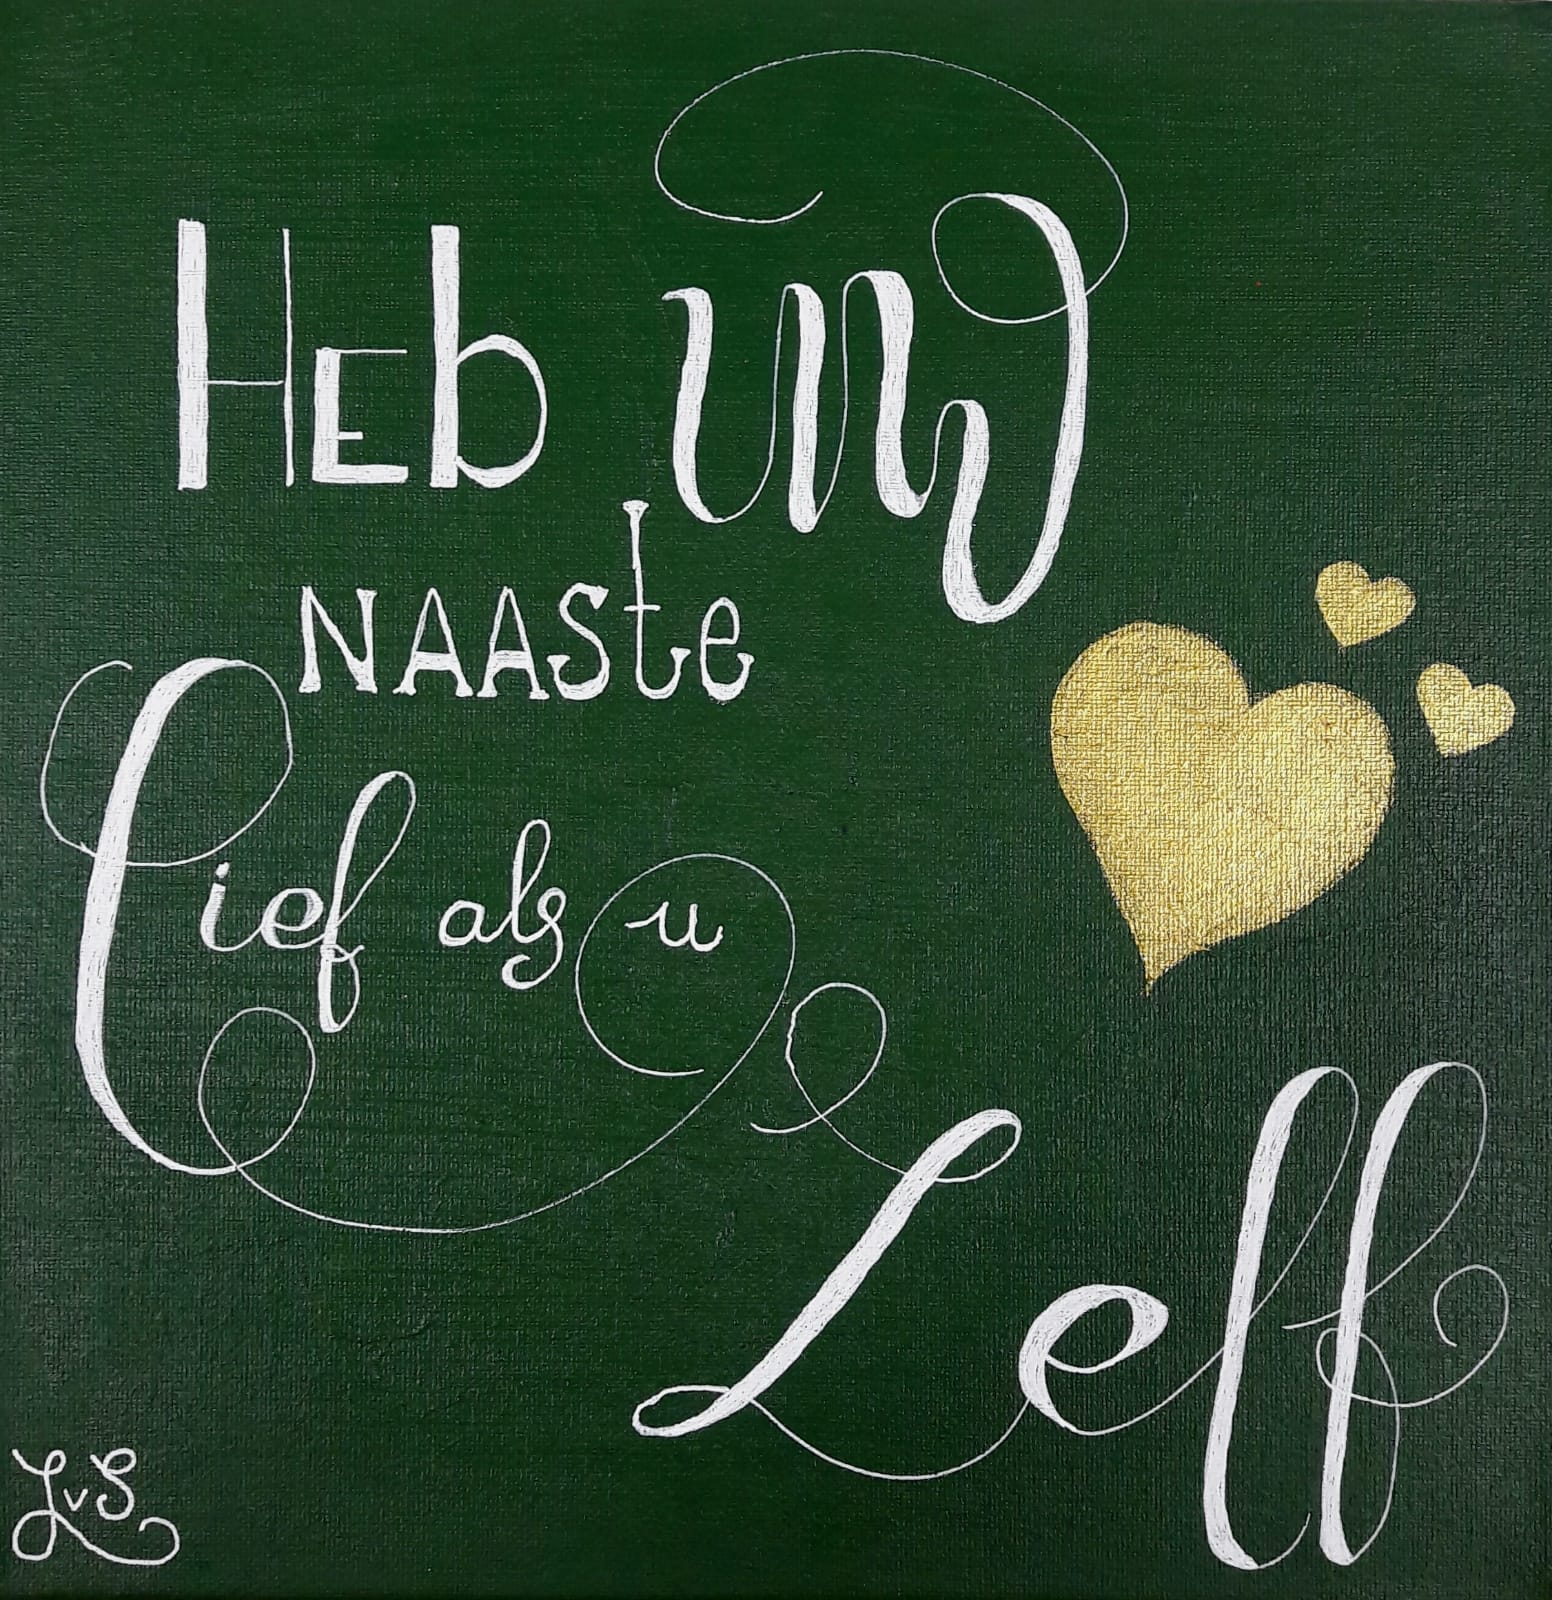 Heb uw
naaste
Lief als u
Zelf
LvS